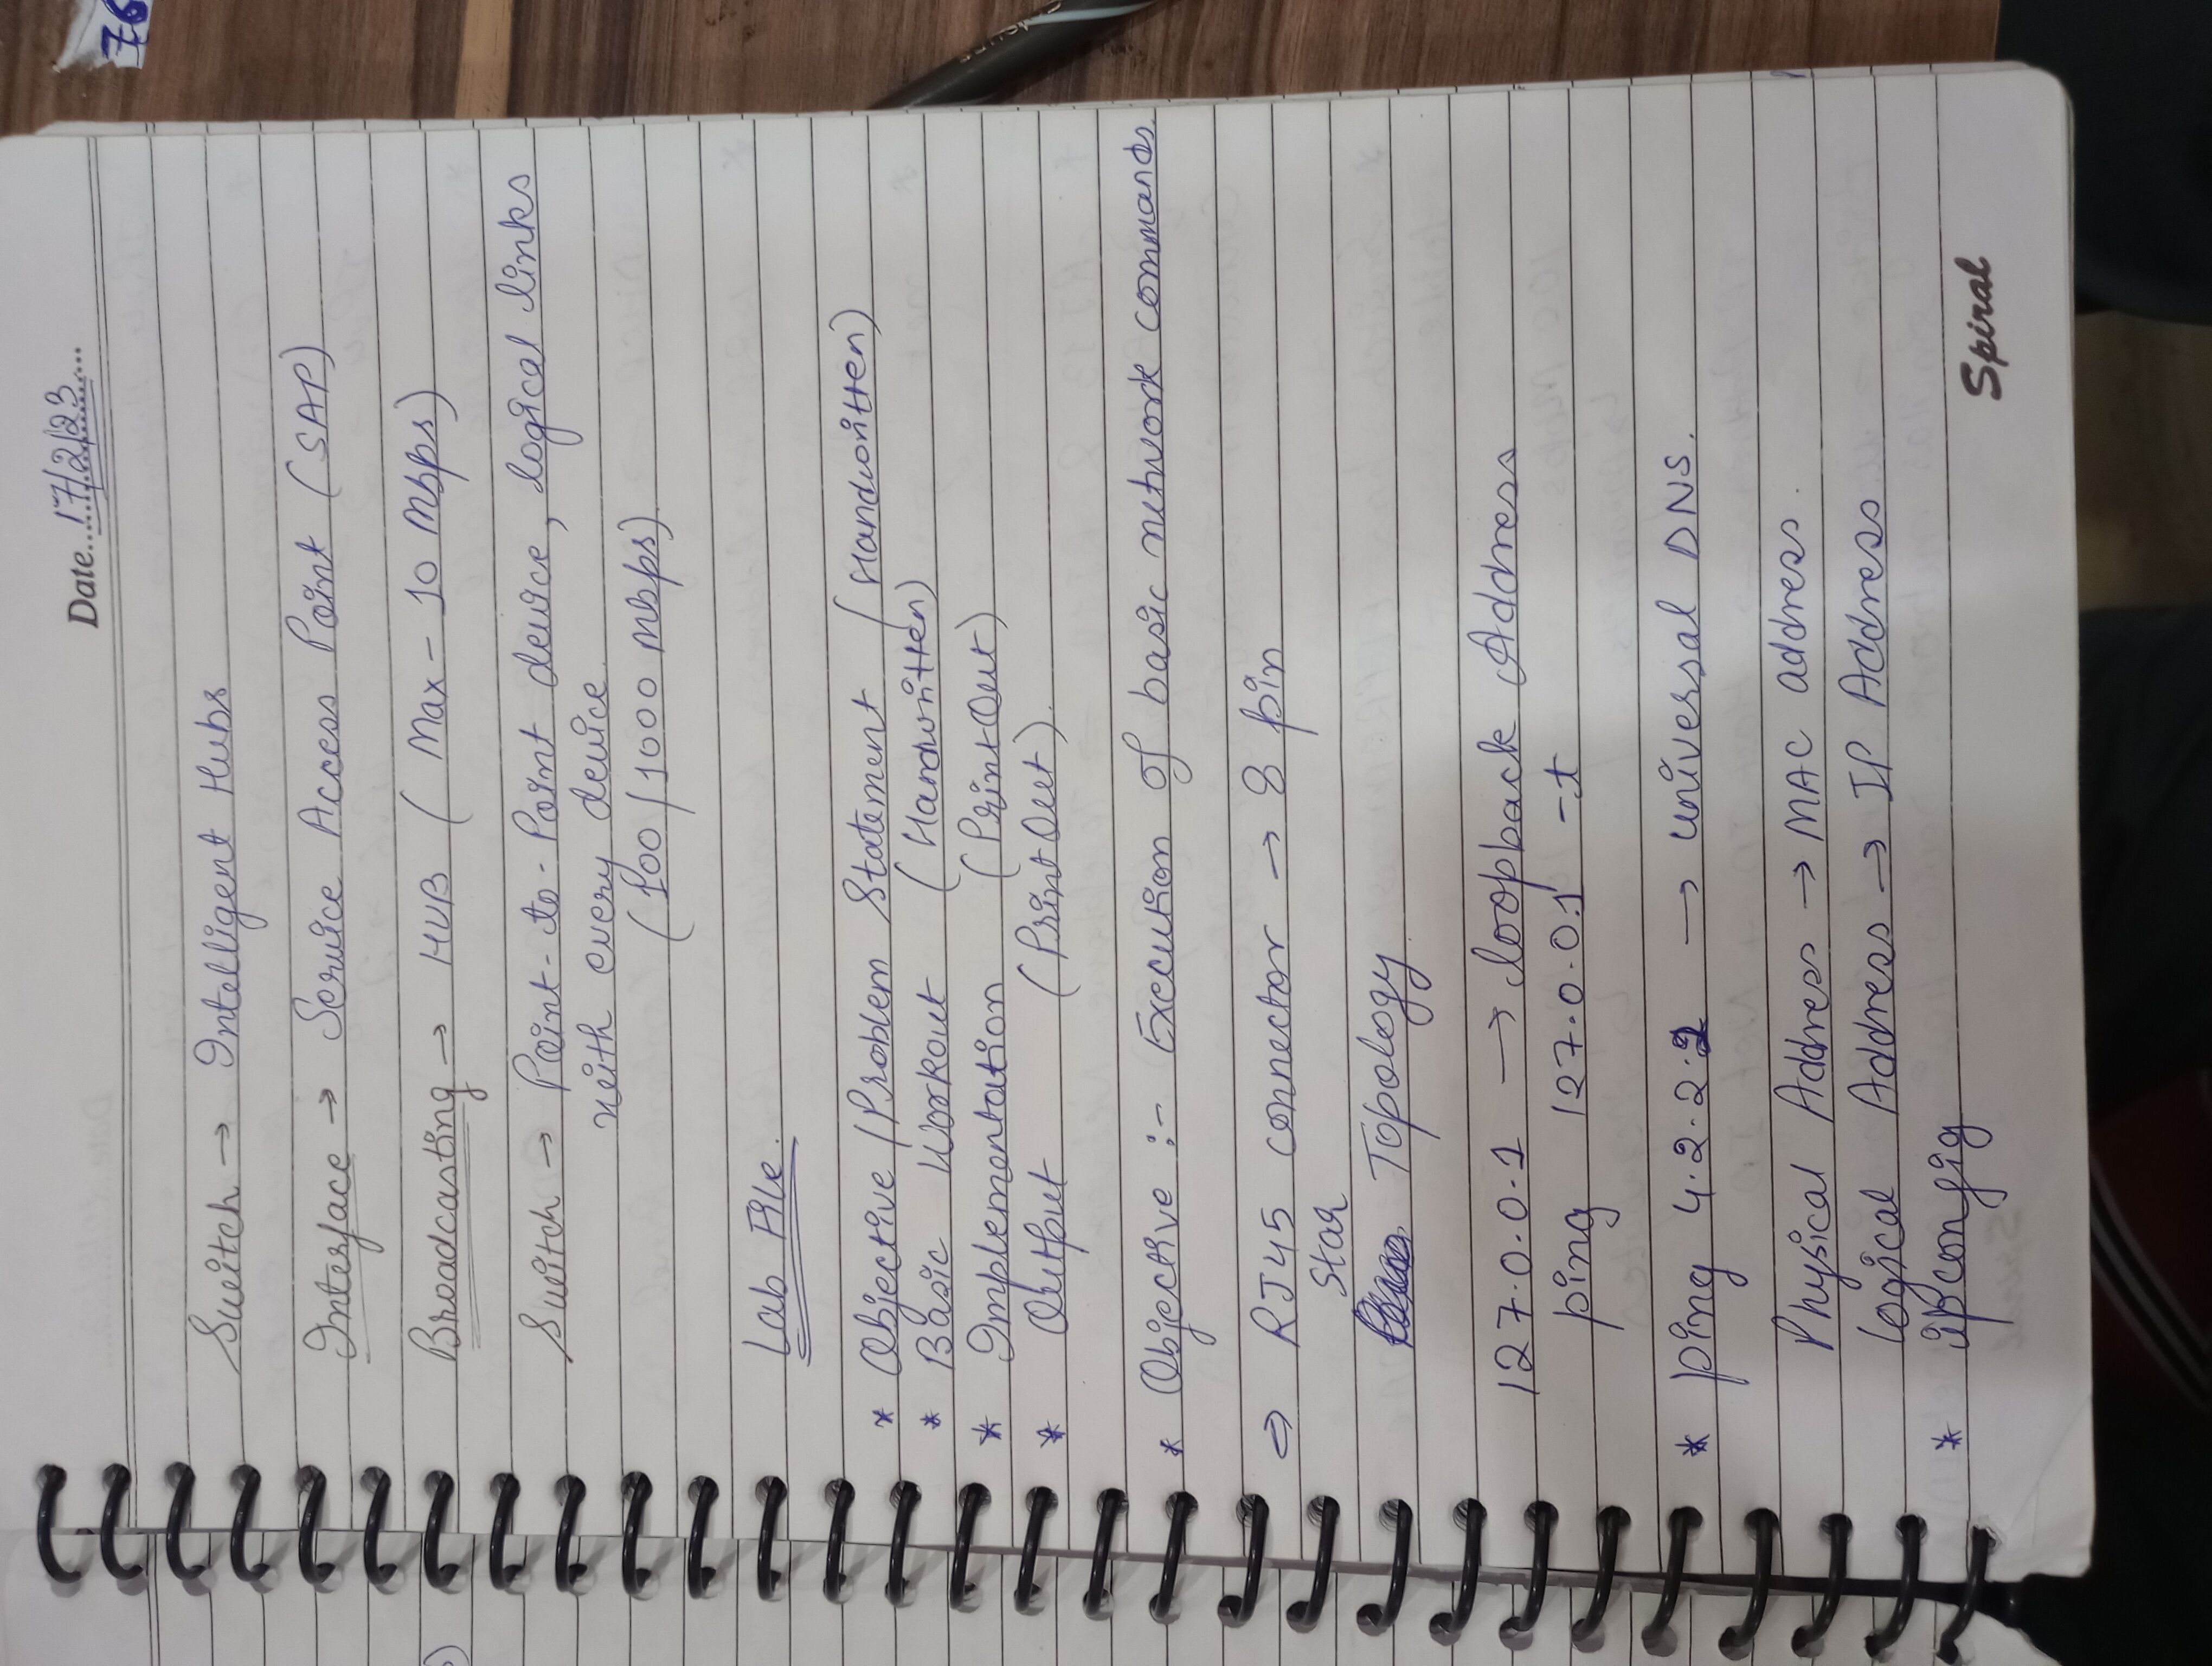 Date 17/2/23
76
Switch → Intelligent Hubs
Interface → Service Access Point (SAP)
Broadcasting → HUB ( Max - 10 Mbps)
Switch → Point-to-Point device, logical links
with every device.
(100/1000 mbps).
Lab File.
* Objective /Problem Statement (Handwritten)
* Basic Workout (Handwritten)
* Implementation (PrintOut)
* Output (PrintOut).
* Objective :- Execution of basic network commands.
⇒ RJ45 connector → 8 pin
Star
Topology.
127.0.0.1 → loopback Address
ping 127.0.0.1 -t
* ping 4.2.2.2 → universal DNS.
Physical Address → MAC address.
Logical Address → IP Address
* ipconfig
Spiral